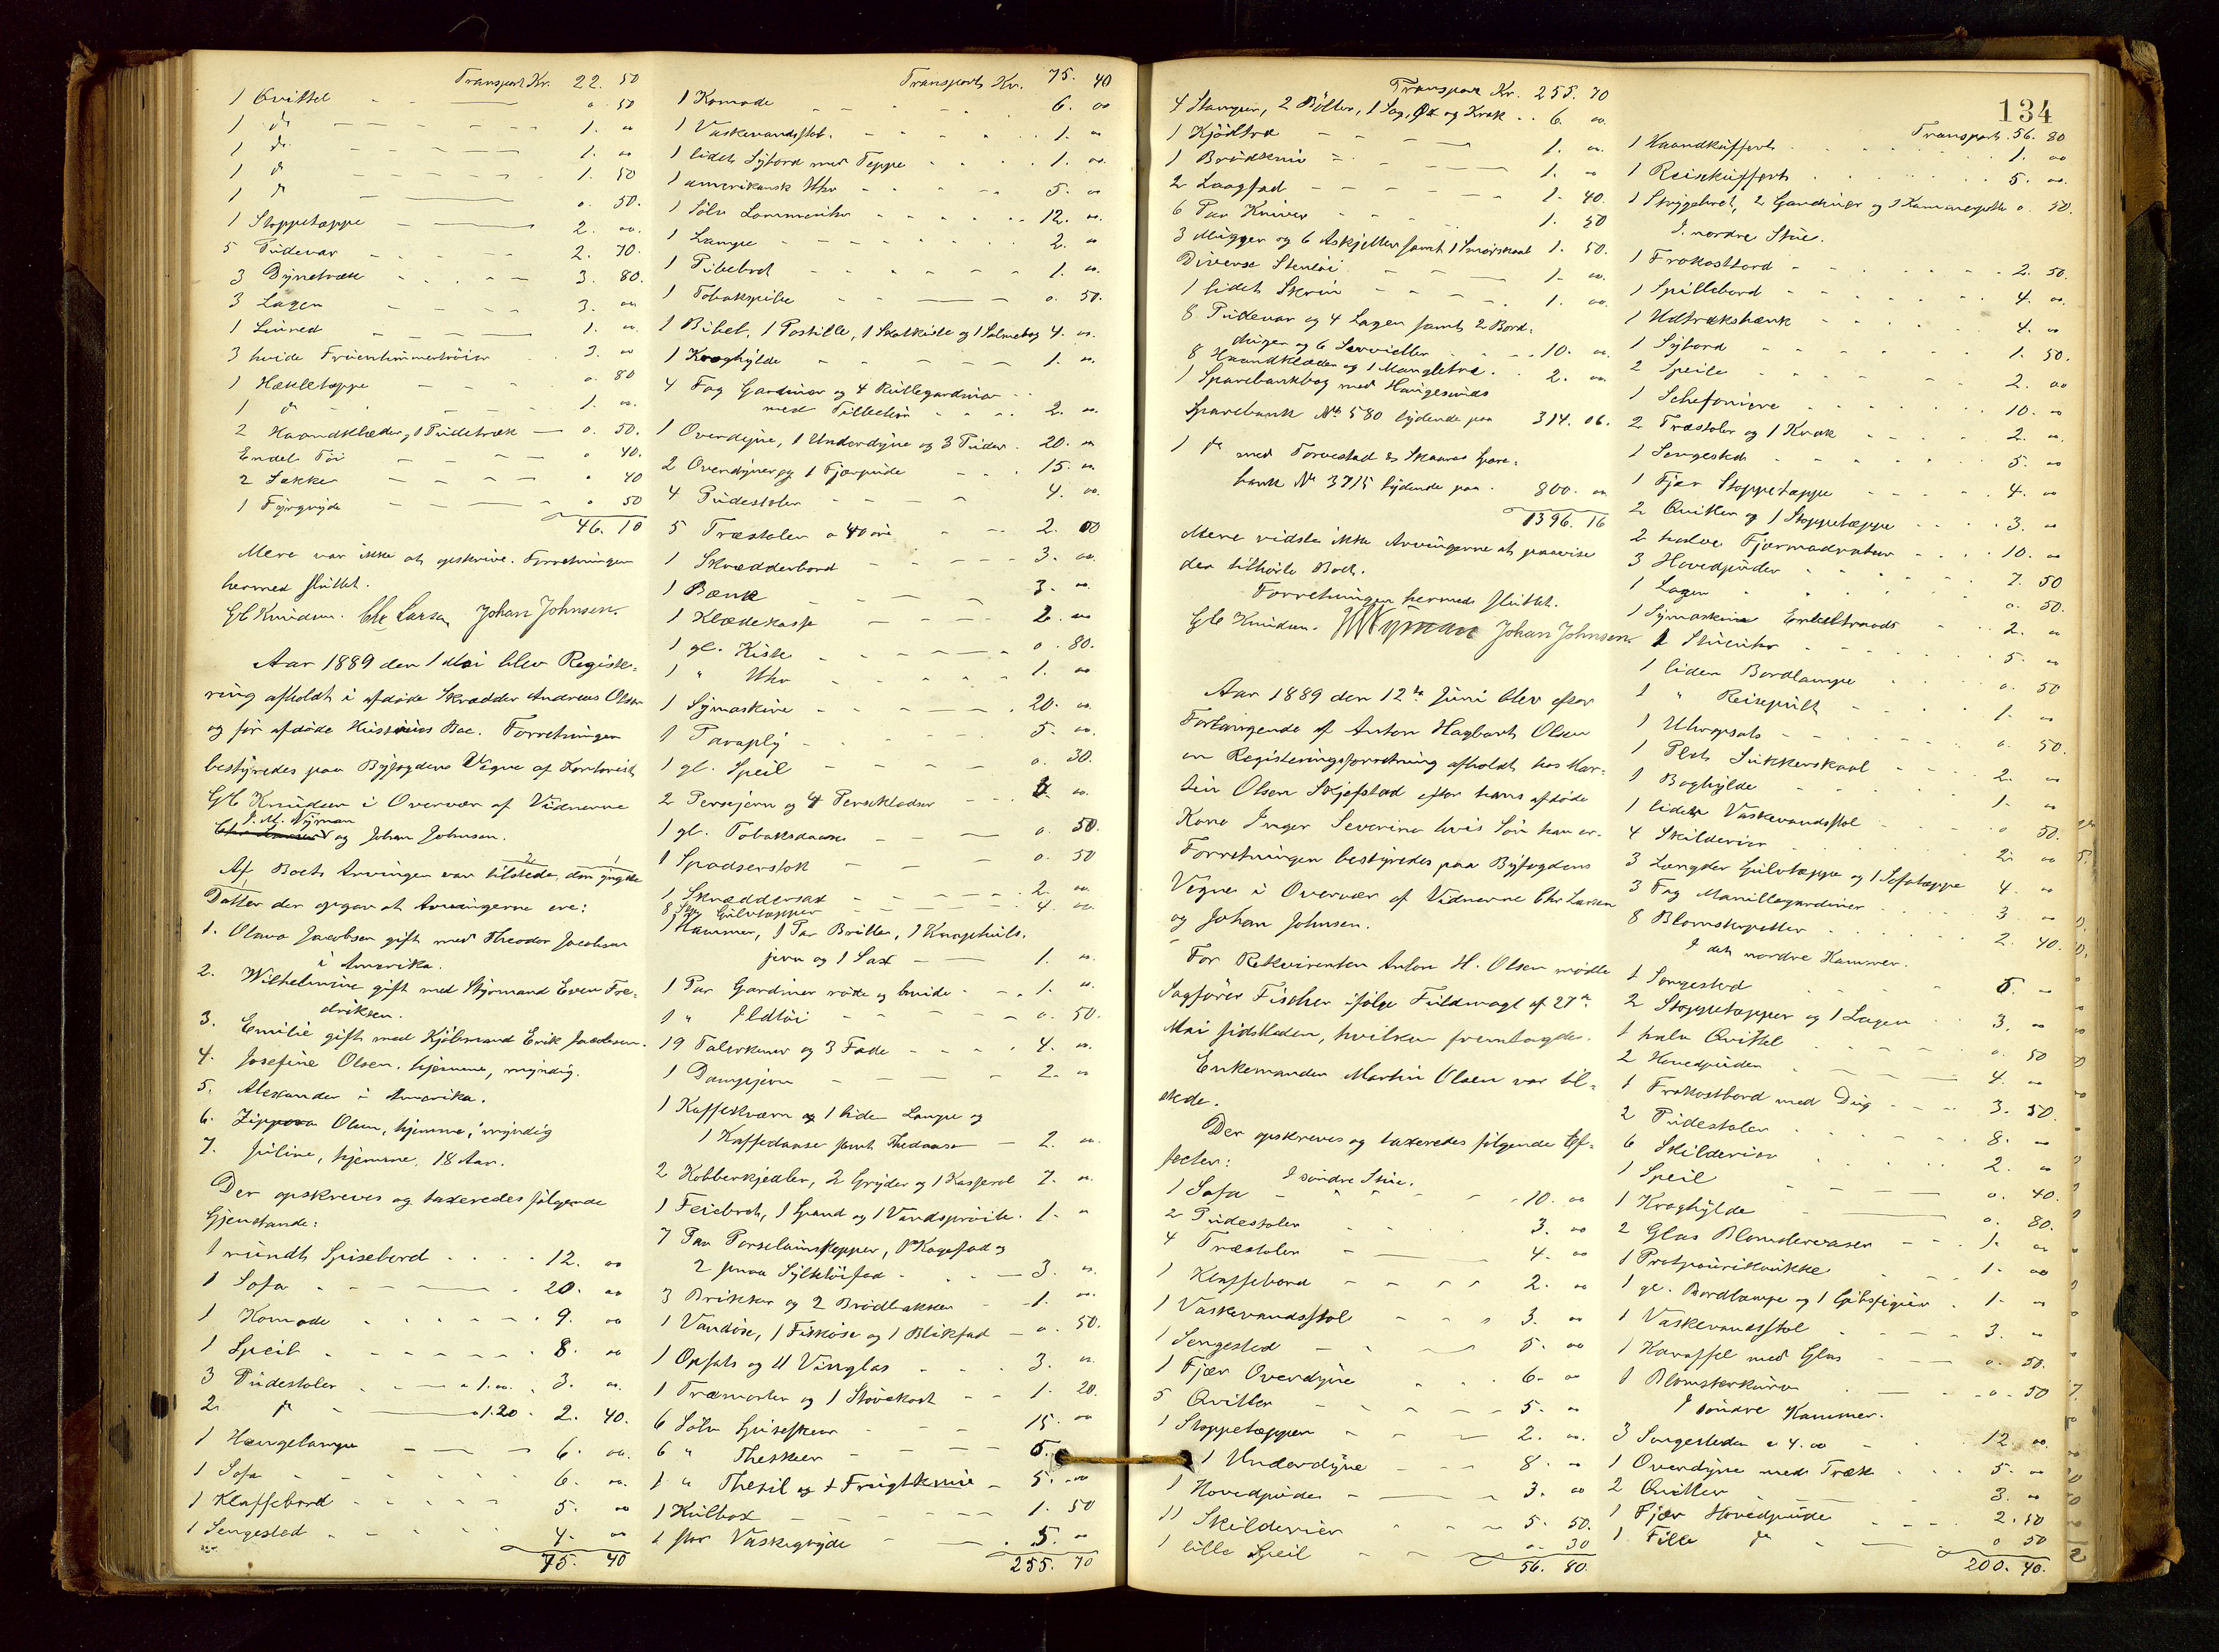 Transport Kr. 22. 50
1 Qvittel - - o. 50
1 do - - - 1. oo
1 do - - - 1. oo
1 do - - - 1. 50
1 do - - - o. 50.
1 Stoppetæppe - 2. oo.
5 Pudevar - - - 2. 70.
3 Dynetræk - - - 3. 80.
3 Lagen - - - 3. oo
1 - - - 1. oo.
3 hvide Fruentimmertröier 3. oo
1 Hækletæppe - - o. 80
1 do - - - 1. oo.
2 Haandklæder, 1 Pudetræk - o. 50.
Endel Töi - - - o 40.
2 Sækker - - - o 40
1 Fyrgryde - - - o 50
46. 10
Mere var ikke at opskrive. Forretningen
hermed sluttet.
Gb Knudsen. Chr Larsen Johan Johnsen.
Aar 1889 den 1 Mai blev Registe-
ring afholdt i afdöde Skrædder Andreas Olsen
og för afdöde Hustrues Bo. Forretningen
bestyredes paa Byfogdens Vegne af Kontorist
Gb Knudsen i Overvær af Vidnerne
J. M. Nyman
og Johan Johnsen.
Af Boets Arvinger var tilstede den yngste
Datter der opgav at Arvingerne ere:
1. Olava Jacobsen gift med Theodor Jacobsen
i Amerika.
2. Wilhelmine gift med Styrmand Even Fre-
driksen.
3. Emilie gift med Kjöbmand Erik Jacobsen.
4. Josefine Olsen, hjemme, myndig.
5. Alexander i Amerika.
6. Zippora Olsen, hjemme, myndig
7. Juline, hjemme, 18 Aar.
Der opskreves og taxeredes fölgende
Gjenstande:
1 rundt Spisebord - - 12. oo
1 Sofa - - - 20. oo
1 Komode - - - 9. oo
1 Speil - - - 8. oo
3 Pudestoler - a 1.oo. 3. oo.
2 do - a 1.20. 2. 40.
1 Hængelampe - - 6. oo.
1 Sofa - - - 6. oo.
1 Klaffebord - - - 5. oo
1 Sengested - - - 4. oo
75. 40
Transport Kr. 75. 40
1 Komode - - - 6. oo
1 Vaskevandsstol - - - 1. oo
1 lidet Sybord med Teppe - - 1. oo.
1 amerikansk Uhr - - - 5. oo
1 Sölv Lommeuhr - - - 12. oo.
1 Lampe - - - 2. oo
1 Pibebret - - - 1. oo.
1 Tobakspibe - - - o. 50.
1 Bibel, 1 Postille, 1 Skatkiste og 1 Salmebog 4. oo.
1 Kraghylde - - - 1. oo.
4 Fag Gardiner og 4 Rullegardiner
med Tilbehör - - - 2. oo.
1 Overdyne, 1 Underdyne og 3 Puder. 20. oo
2 Overdyner og 1 Fjærpude - - 15. oo
4 Pudestoler - - - 4. oo.
5 Træstoler a 40 öre - - 2. 00
1 Skrædderbord - - - 3. oo.
1 Bænk - - - 3. oo
1 Klædekasse - - - 2. oo
1 gl. Kiste - - - o. 80.
1 " Uhr - - - 1. oo
1 Symaskine - - - 20. oo.
1 Paraply - - - 5. oo.
1 gl. Speil - - - o. 30.
2 Persejern og 4 Perseklodser - oo.
1 gl. Tobaksdaase - - o. 50.
1 Spadserstok - - - o. 50
1 Skræddersax - - - 2. oo.
8 Gulvtæpper - - - 4. oo.
1 Hammer, 1 Par Briller, 1 Knaphuls-
jern og 1 Sax - - 1. oo.
1 Par Gardiner röde og hvide - - 1. oo.
1 " Ildtöi - - - o. 50.
19 Talerkener og 3 Fade - - 4. oo.
1 Dampjern - - - 2. oo
1 Kaffekværn og 1 liden Lampe og
1 Kaffedaase samt Thedaase - 2. oo.
2 Kobberkjedler, 2 Gryder og 1 Kasserol 7. oo.
1 Feiebret, 1 Spand og 1 Vandspröite. 1. oo
7 Par Porselainskopper, 1 Kagefad og
2 smaa Syltetöifad - - 3. oo.
3 Brikker og 2 Brödbakker - 1. oo.
1 Vandöse, 1 Fisköse og 1 Blikfad - o. 50.
1 Opsats og 11 Vinglas - - 3. oo.
1 Træmorter og 1 Stövekost - - 1. 20.
6 Sölv Spiseskeer - - 15. oo
6 " Theskeer - - 5.
1 " Thesil og 1 Frugtkniv - 5. oo
1 Kulbox - - - 1. 50
1 stor Vaskegryde - - 5. oo
255. 70
134
Transport Kr. 255. 70
4 Stamper, 2 Bötter, 1 Sag, Öx og Krak - - 6. oo.
1 Kjödtræ - - - 1. oo.
1 Brödkniv - - - 1. oo
2 Laagfad - - - 1. 40.
6 Par Kniver - - - 1. 50
3 Mugger og 6 Askjetter samt 1 Smörskaal 1. 50.
Diverse Stentöi - - 1. oo.
1 lidet Skrin - - - 1. oo.
8 Pudevar og 4 Lagen samt 2 Bord-
duger og 6 Servietter - - 10. oo.
8 Haandklæder og 1 Mangletræ - 2. oo.
1 Sparebankbog med Haugesunds
Sparebank No 580 lydende paa 314. 06.
1 do med Torvestad & Skaares Spare-
bank No 3715 lydende paa - 800. oo
1396. 16
Mere vidste ikke Arvingerne at paavise
der tilhörte Boet.
Forretningen hermed sluttet.
Gb Knudsen. JMNyman Johan Johnsen
Aar 1889 den 12te Juni blev efter
Forlangende af Anton Hagbart Olsen
en Registeringsforretning afholdt hos Mar-
tin Olsen Skjefstad efter hans afdöde
Kone Inger Severine hvis Sön han er.
Forretningen bestyredes paa Byfogdens
Vegne i Overvær af Vidnerne Chr Larsen
og Johan Johnsen.
For Rekvirenten Anton H. Olsen mödte
Sagförer Fischer ifölge Fuldmagt af 27de
Mai sidstleden, hvilken fremlagdes.
Enkemanden Martin Olsen var til-
stede.
Der opskreves og taxeredes fölgende Ef-
fecter:
I söndre Stue.
1 Sofa - - - 10. oo
2 Pudestoler - - - 3. oo
4 Træstoler - - - 4. oo
1 Klaffebord - - - 2. oo
1 Vaskevandsstol - - - 3. oo
1 Sengested - - - 5. oo
1 Fjær Overdyne - - - 6. oo
5 Qvitler - - - 5. oo
1 Stoppetæpper - - - 2. oo.
1 Underdyne - - - 8. oo
1 Hovedpuder - - - 3. oo
11 Skilderier - - - 5. 50.
1 lille Speil - - - o. 30
56. 80.
Transport. 56. 80
1 Haandkuffert - - - 1. oo
1 Reisekuffert - - - 5. oo.
1 Strygebret, 2 Gardiner og 1 Kammerpotte o. 50.
I nordre Stue.
1 Frokostbord - - - 2. 50.
1 Spillebord - - - 4. oo.
1 Udtræksbænk - - - 4. oo
1 Sybord - - - 1. 50.
2 Speile - - - 2. oo
1 Schefoniere - - - 10. oo
2 Træstoler og 1 Krak - - - 2. oo.
1 Sengested - - - 5. oo
1 Fjær Stoppetæppe - - - 4. oo
2 Qvitler og 1 Stoppetæppe - - 3. oo
2 halve Fjærmadratser - - 10. oo
3 Hovedpuder - - - 7. 50
1 Lagen - - - o. 50.
1 Symaskine Enkelttraads - - 2. oo
1 Stueuhr - - - 5. oo
1 liden Bordlampe - - - o. 50
1 " Reisepult - - - 1. oo
1 Uhropsats - - - o. 50.
1 Plet Sukkerskaal - - - 2. oo
1 Boghylde - - - 1. oo
1 lidet Vaskevandsstol - - - o. 50.
4 Skilderier - - - 2. oo
3 Længder Gulvtæppe og 1 Sofatæppe 4. oo
3 Fag Manillagardiner - - 3. oo
8 Blomsterpotter - - - 2. 40.
I det nordre Kammer.
1 Sengested - - - 5. oo
2 Stoppetæpper og 1 Lagen - - 3. oo
1 halv Qvittel - - - o. 50
2 Hovedpuder - - - 4. oo
1 Frokostbord med Dug - - 3. 50.
2 Pudestoler - - - 8. oo
6 Skilderier - - - 2. oo
1 Speil - - - o. 40.
1 Kraghylde - - - o. 80.
2 Glas Blomstervaser - - 1. oo
1 Potpourikrukke - - 1. oo
1 gl. Bordlampe og 1 Gibsfigur - 1. oo
1 Vaskevandsstol - - - 3. oo
1 Karaffel med Glas - - o. 50.
1 Blomsterkurv - - - o. 50
I söndre Kammer.
3 Sengesteder a 4.oo - - 12. oo.
1 Overdyne med Træk - - 5. oo
2 Qvitler - - - 3. oo
1 Fjær Hovedpude - - - 2. 50
1 Fille do - - - o 50
200. 40.